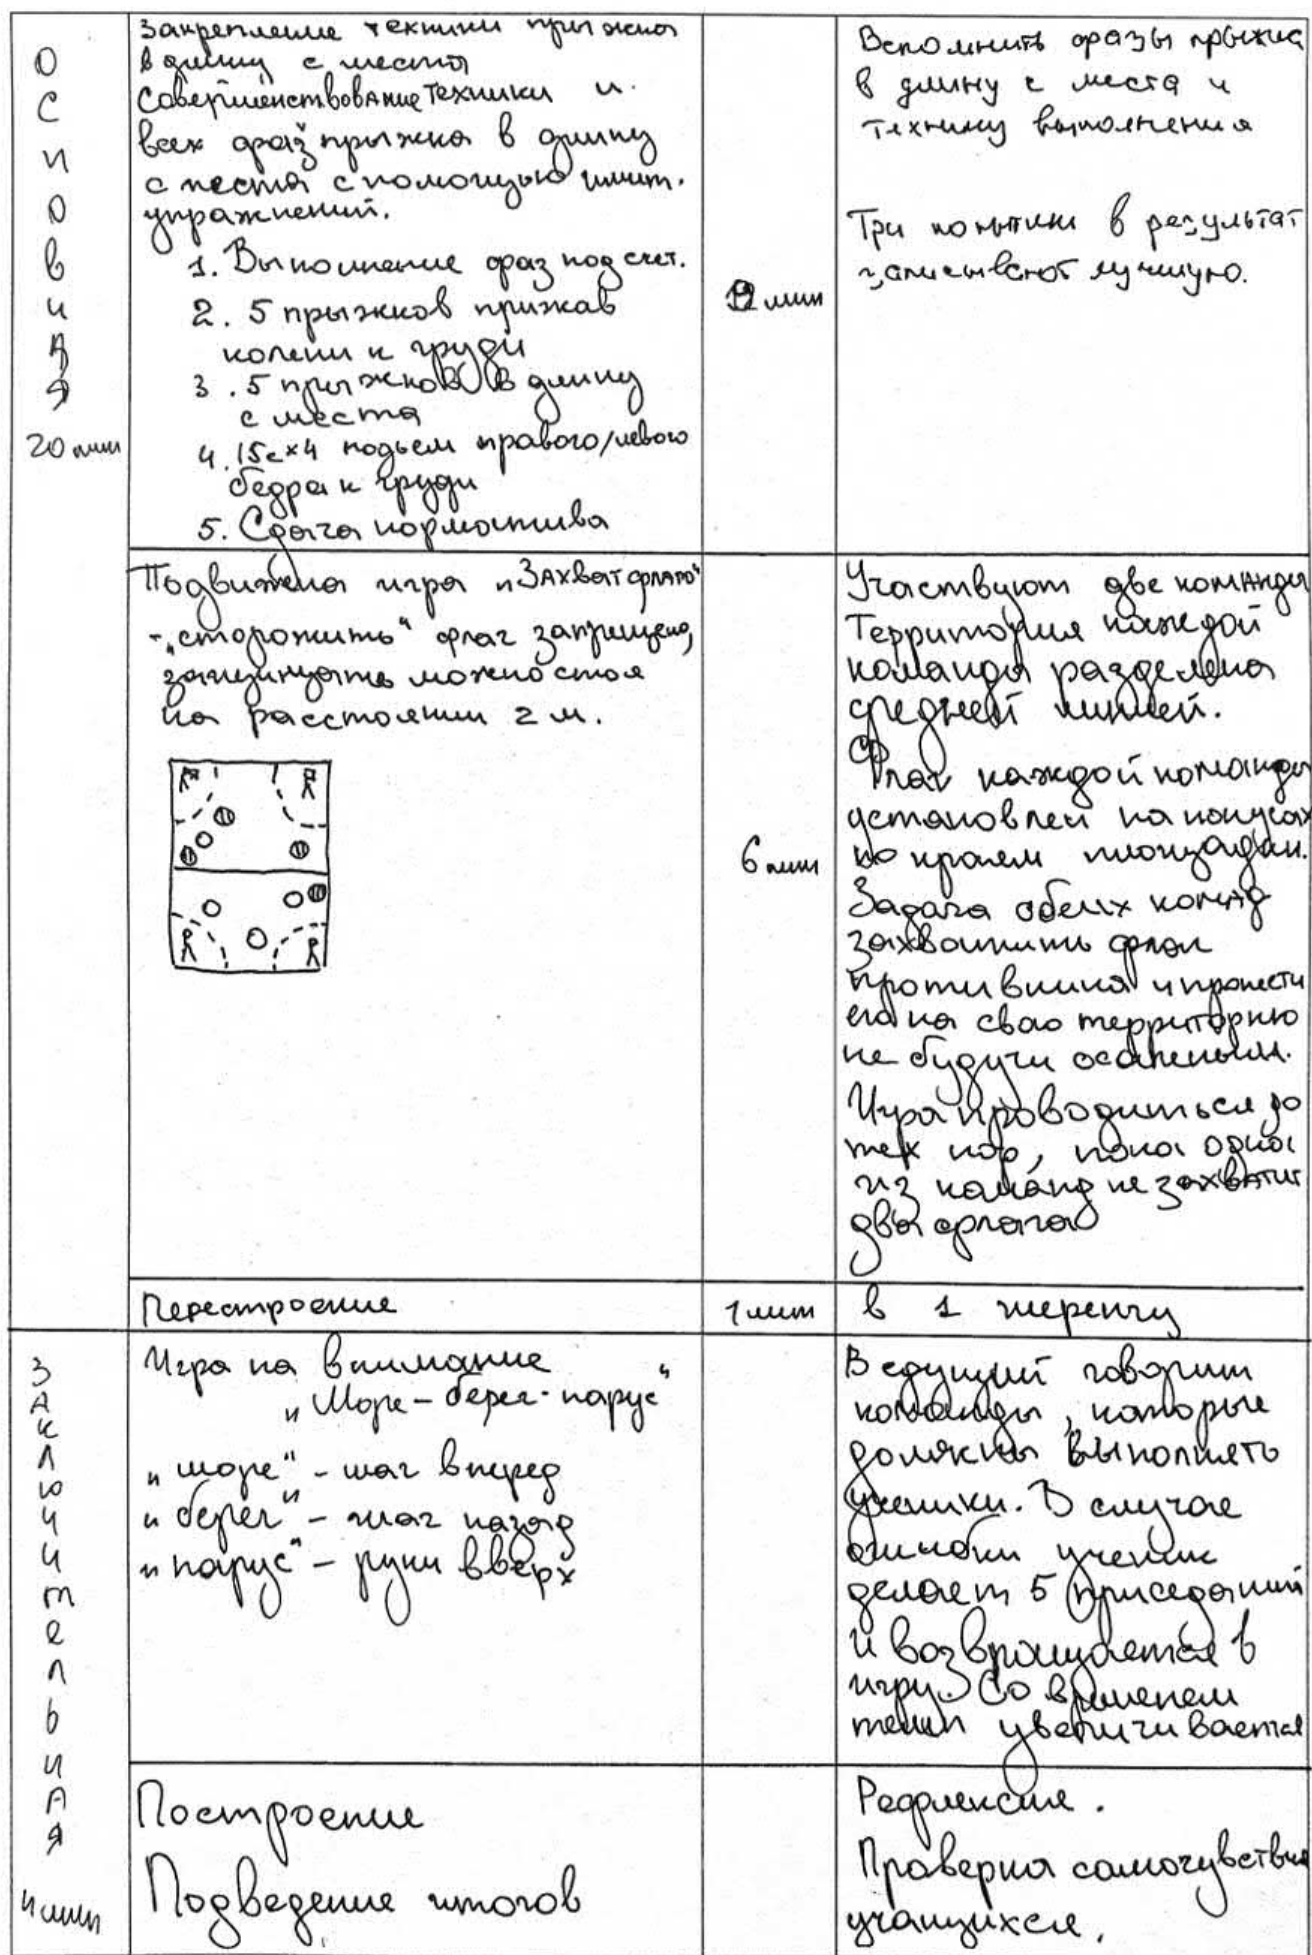 ОСНОВНАЯ
20 мин
Закрепление техники прыжка
в длину с места
Совершенствование техники и
всех фаз прыжка в длину
с места с помощью имит.
упражнений.
1. Выполнение фраз под счет.
2. 5 прыжков прижав
колени к груди
3. 5 прыжков в длину
с места
4. 15с×4 подъем правого/левого
бедра к груди
5. Сдача норматива
мин
Вспомнить фразы прыжка
в длину с места и
технику выполнения
Три попытки в результат
записывают лучшую.
Подвижная игра „Захват флага"
- „сторожить" флаг запрещено,
защищать можно стоя
на расстоянии 2 м.
6 мин
Участвуют две команды
Территория каждой
команды разделена
средней линией.
Флаг каждой команды
установлен на конусах
по краям площадки.
Задача обеих команд
захватить флаг
противника и пронести
его на свою территорию
не будучи осаленым.
Игра проводиться до
тех пор, пока одна
из команд не захватит
два флага
Перестроение
1 мин
в 1 шеренгу
ЗАКЛЮЧИТЕЛЬНАЯ
4 мин
Игра на внимание
„Море - берег - парус"
„море" - шаг вперед
„берег" - шаг назад
„парус" - руки вверх
Ведущий говорит
команды, которые
должны выполнять
ученики. В случае
ошибки ученик
делает 5 приседаний
и возвращается в
игру. Со временем
темп увеличивается
Построение
Подведение итогов
Рефлексия.
Проверка самочувствия
учащихся.